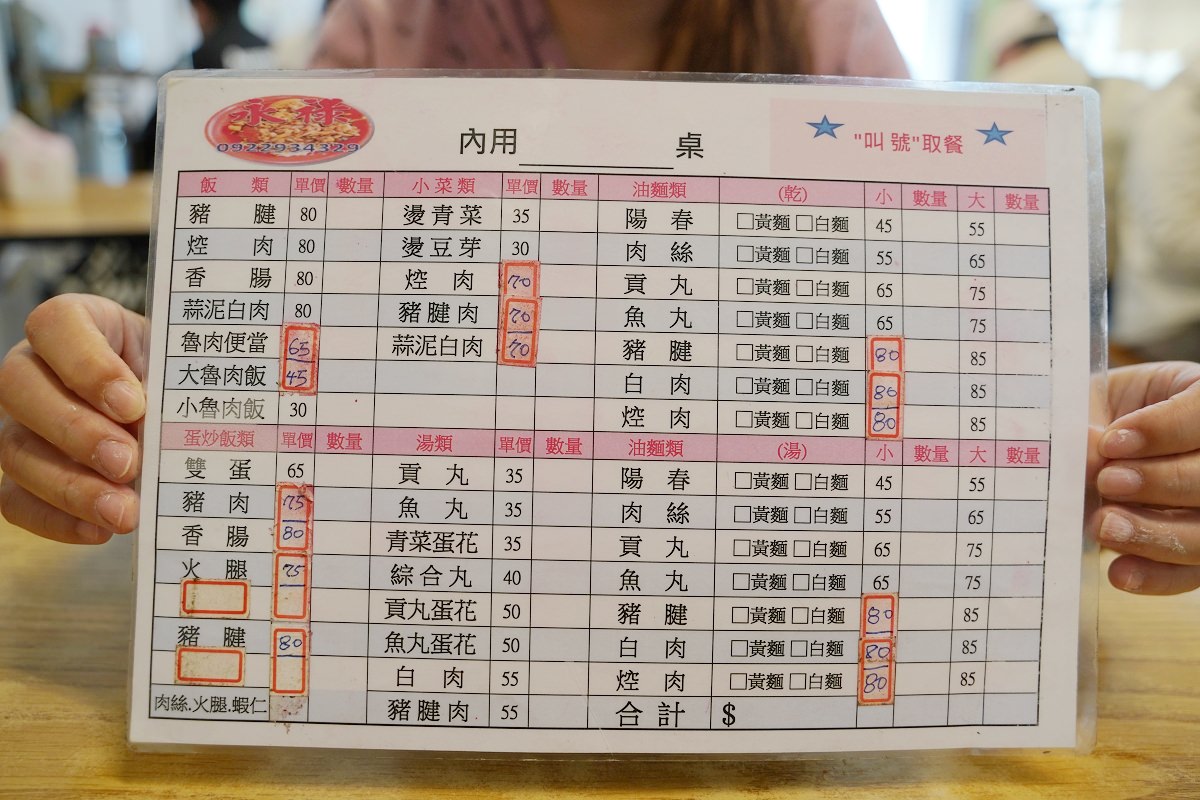 永祿
0922934329
內用 桌
"叫號"取餐
飯類 單價 數量 小菜類 單價 數量 油麵類 (乾) 小 數量 大 數量
豬腱 80 燙青菜 35 陽春 □黃麵 □白麵 45 55
焢肉 80 燙豆芽 30 肉絲 □黃麵 □白麵 55 65
香腸 80 焢肉 70 貢丸 □黃麵 □白麵 65 75
蒜泥白肉 80 豬腱肉 70 魚丸 □黃麵 □白麵 65 75
魯肉便當 65 蒜泥白肉 70 豬腱 □黃麵 □白麵 80 85
大魯肉飯 45 白肉 □黃麵 □白麵 80 85
小魯肉飯 30 焢肉 □黃麵 □白麵 80 85
蛋炒飯類 單價 數量 湯類 單價 數量 油麵類 (湯) 小 數量 大 數量
雙蛋 65 貢丸 35 陽春 □黃麵 □白麵 45 55
豬肉 75 魚丸 35 肉絲 □黃麵 □白麵 55 65
香腸 80 青菜蛋花 35 貢丸 □黃麵 □白麵 65 75
火腿 75 綜合丸 40 魚丸 □黃麵 □白麵 65 75
貢丸蛋花 50 豬腱 □黃麵 □白麵 80 85
豬腱 80 魚丸蛋花 50 白肉 □黃麵 □白麵 80 85
白肉 55 焢肉 □黃麵 □白麵 80 85
肉絲.火腿.蝦仁 豬腱肉 55 合計 $